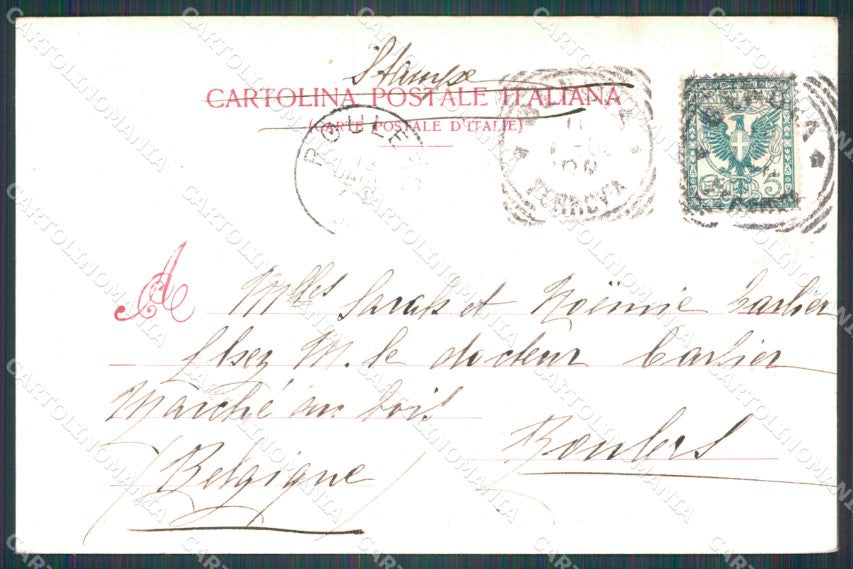 Stampe
CARTOLINA POSTALE ITALIANA
(CARTE POSTALE D'ITALIE)
ROULE
GENOVA
FERROVIA
A
Mlles Sarah et Noëmie Carlier
Chez M. le docteur Carlier
Marché au bois
Roulers
(Belgique)
CARTOLINOMANIA